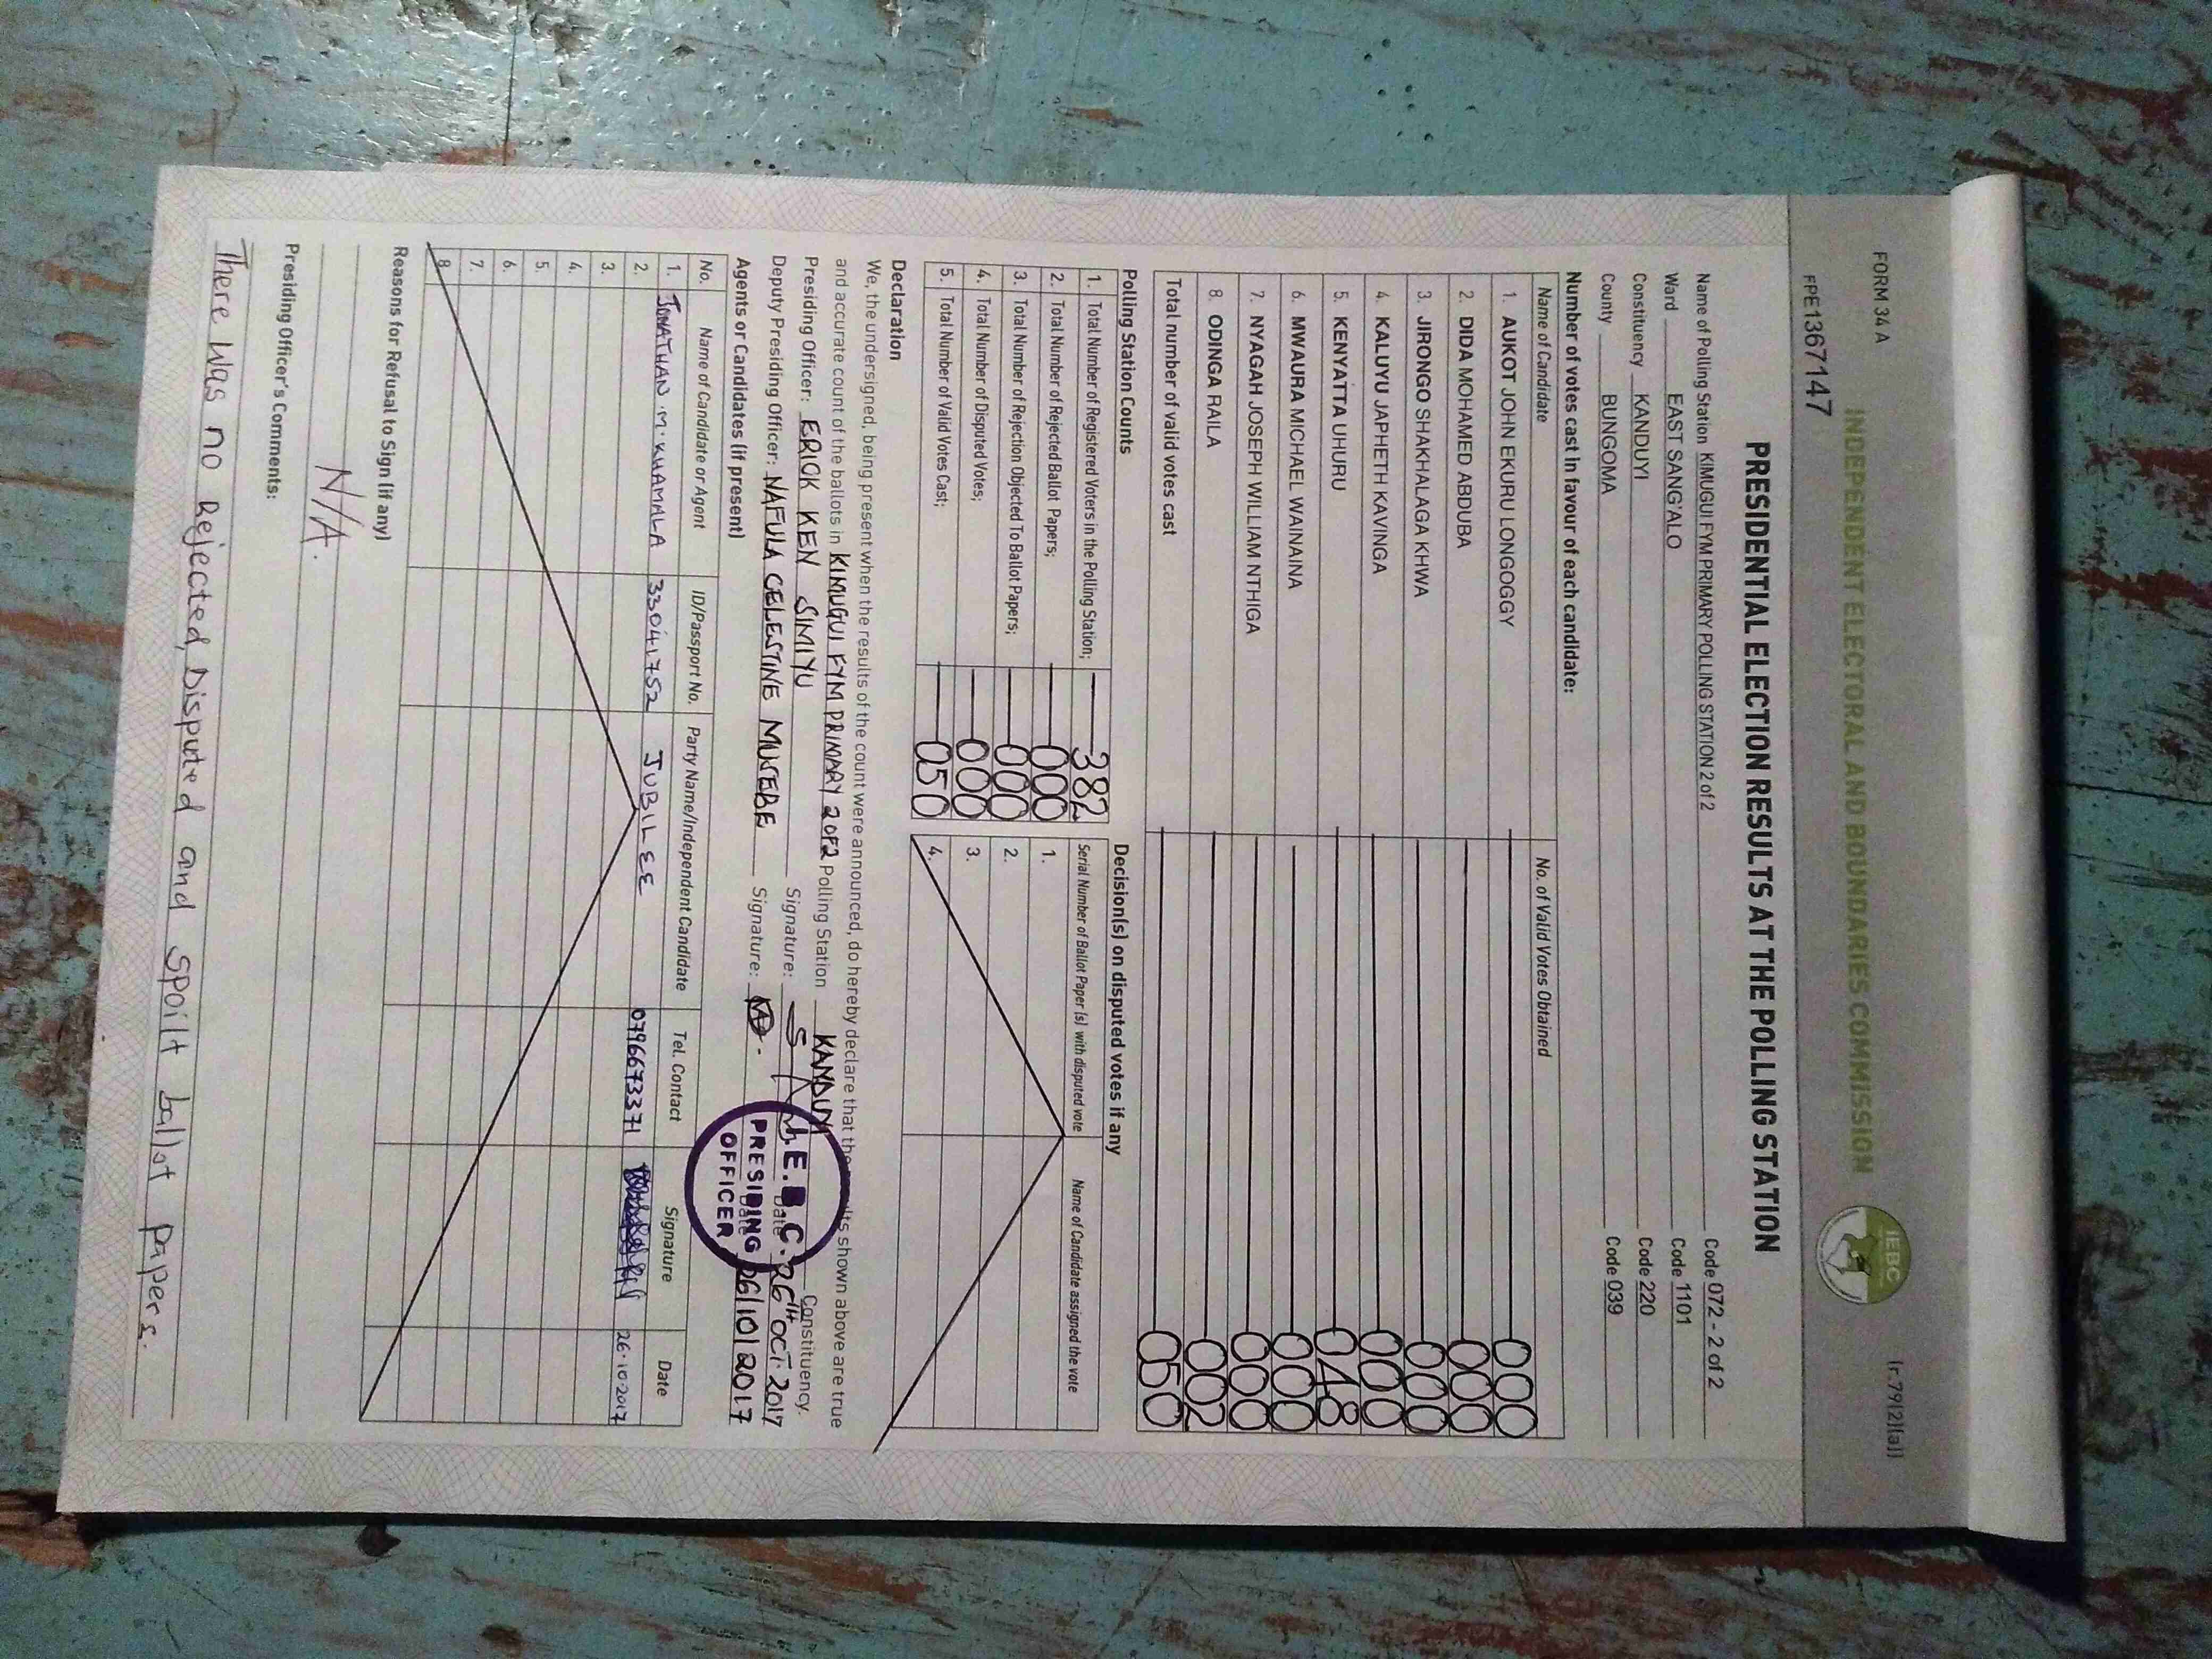 FORM 34 A
(r.79(2)(a))
INDEPENDENT ELECTORAL AND BOUNDARIES COMMISSION
IEBC
FPE1367147
PRESIDENTIAL ELECTION RESULTS AT THE POLLING STATION
Name of Polling Station KIMUGUI FYM PRIMARY POLLING STATION 2 of 2 Code 072 - 2 of 2
Ward EAST SANG'ALO Code 1101
Constituency KANDUYI Code 220
County BUNGOMA Code 039
Number of votes cast in favour of each candidate:
Name of Candidate No. of Valid Votes Obtained
1. AUKOT JOHN EKURU LONGOGGY 000
2. DIDA MOHAMED ABDUBA 000
3. JIRONGO SHAKHALAGA KHWA 000
4. KALUYU JAPHETH KAVINGA 000
5. KENYATTA UHURU 048
6. MWAURA MICHAEL WAINAINA 000
7. NYAGAH JOSEPH WILLIAM NTHIGA 000
8. ODINGA RAILA 002
Total number of valid votes cast 050
Polling Station Counts
1. Total Number of Registered Voters in the Polling Station; 382
2. Total Number of Rejected Ballot Papers; 000
3. Total Number of Rejection Objected To Ballot Papers; 000
4. Total Number of Disputed Votes; 000
5. Total Number of Valid Votes Cast; 050
Decision(s) on disputed votes if any
Serial Number of Ballot Paper (s) with disputed vote Name of Candidate assigned the vote
1.
2.
3.
4.
Declaration
We, the undersigned, being present when the results of the count were announced, do hereby declare that the results shown above are true
and accurate count of the ballots in KIMUGUI FYM PRIMARY 2 OF 2 Polling Station KANDUYI Constituency.
Presiding Officer: ERICK KEN SIMIYU Signature: Date 26TH OCT. 2017
Deputy Presiding Officer: NAFULA CELESTINE MUKEBE Signature: Date 26/10/2017
I.E.B.C.
PRESIDING
OFFICER
Agents or Candidates (if present)
No. Name of Candidate or Agent ID/Passport No. Party Name/Independent Candidate Tel. Contact Signature Date
1. JONATHAN .M. KHAMALA 33041752 JUBILEE 0796673371 26.10.2017
2.
3.
4.
5.
6.
7.
8.
Reasons for Refusal to Sign (if any)
N/A.
Presiding Officer's Comments:
There was no Rejected, Disputed and spoilt ballot papers.